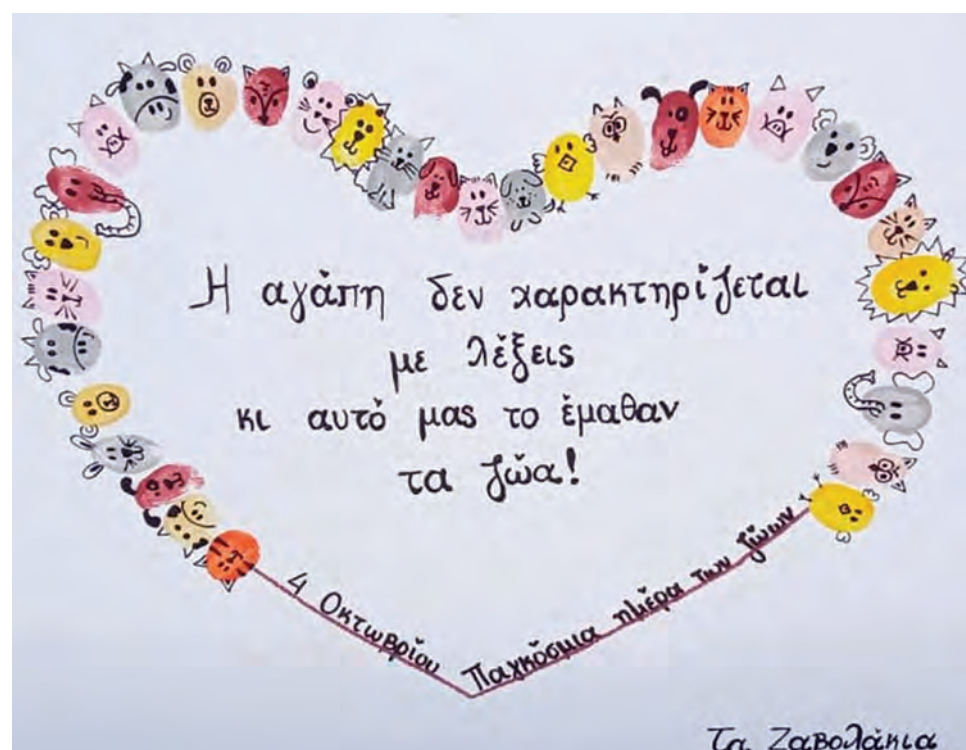 Η αγάπη δεν χαρακτηρίζεται
με λέξεις
κι αυτό μας το έμαθαν
τα ζώα!
4 Οκτωβρίου
Παγκόσμια ημέρα των ζώων
Τα Ζαβολάκια